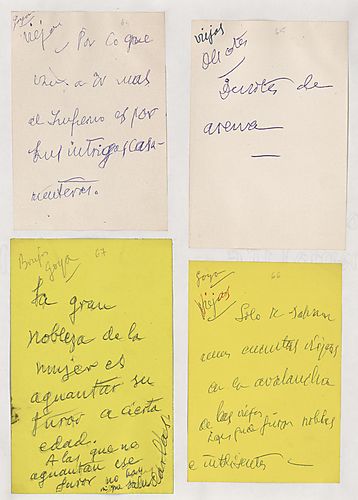 Goya
viejas
64
Por lo que
van a ir mas
al Infierno es por
sus intrigas casa-
menteras.
viejas
65
de
arena
Brujas
Goya
67
La gran
nobleza de la
mujer es
aguantar su
furor a cierta
edad.
A las que no
aguantan ese
furor no hay
Goya
66
viejas
Solo se salvan
unas cuantas viejas
en la avalancha
de las viejas
que fueron nobles